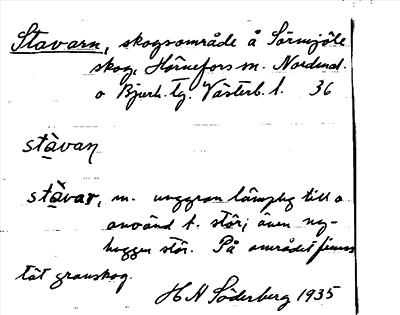 Stavarn, skogsområde å Sörmjöle
skog, Hörnefors m. Nordmal.
o Bjurh. tg. Västerb. l. 36
stàvaṇ
stàvar, m. unggran lämplig till o
använd t. stör; även ny-
huggen stör. På området finnes
tät granskog.
H N Söderberg 1935